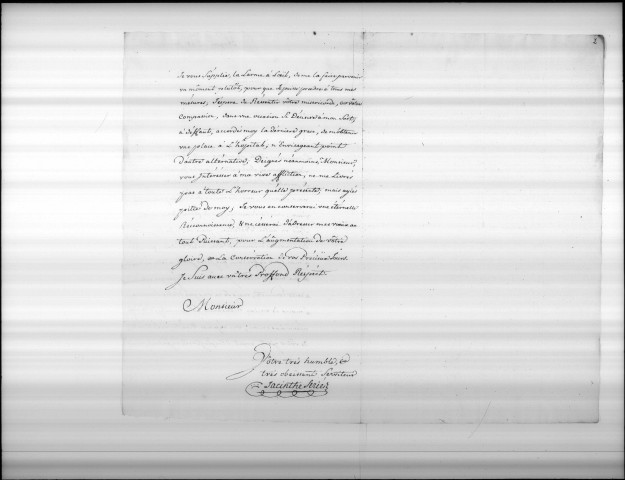 2
Je vous supplie, la Larme à L'œil, de me la faire parvenir
un moment plutôt, pour que je puisse prendre à tous mes
mesures, J'espere de Ressentir vôtre misericorde, vôtre
Compassion, dans une vacation Si Déniere à mon Sort,
à deffaut, accordés moy la derniere grace, de m'obtenir
une place à L'hôpital; n'Envisageant point
d'autre alternative; Daignés néanmoins, Monsieur,
vous Intéresser à ma vive affliction, ne me Livrés
pas à toute L'horreur qu'elle présente, mais ayés
pitié de moy; Je vous en conserverai une éternele
Réconnoissance, & ne cesserai d'adresser mes vœux au
tout Puissant, pour L'augmentation de vôtre
gloire, & La Conservation de vos Précieux Jours.
Je Suis avec un très Proffond Respect.
Monsieur
Vôtre très humble, &
très obeissant Serviteur
Jacinthe Series